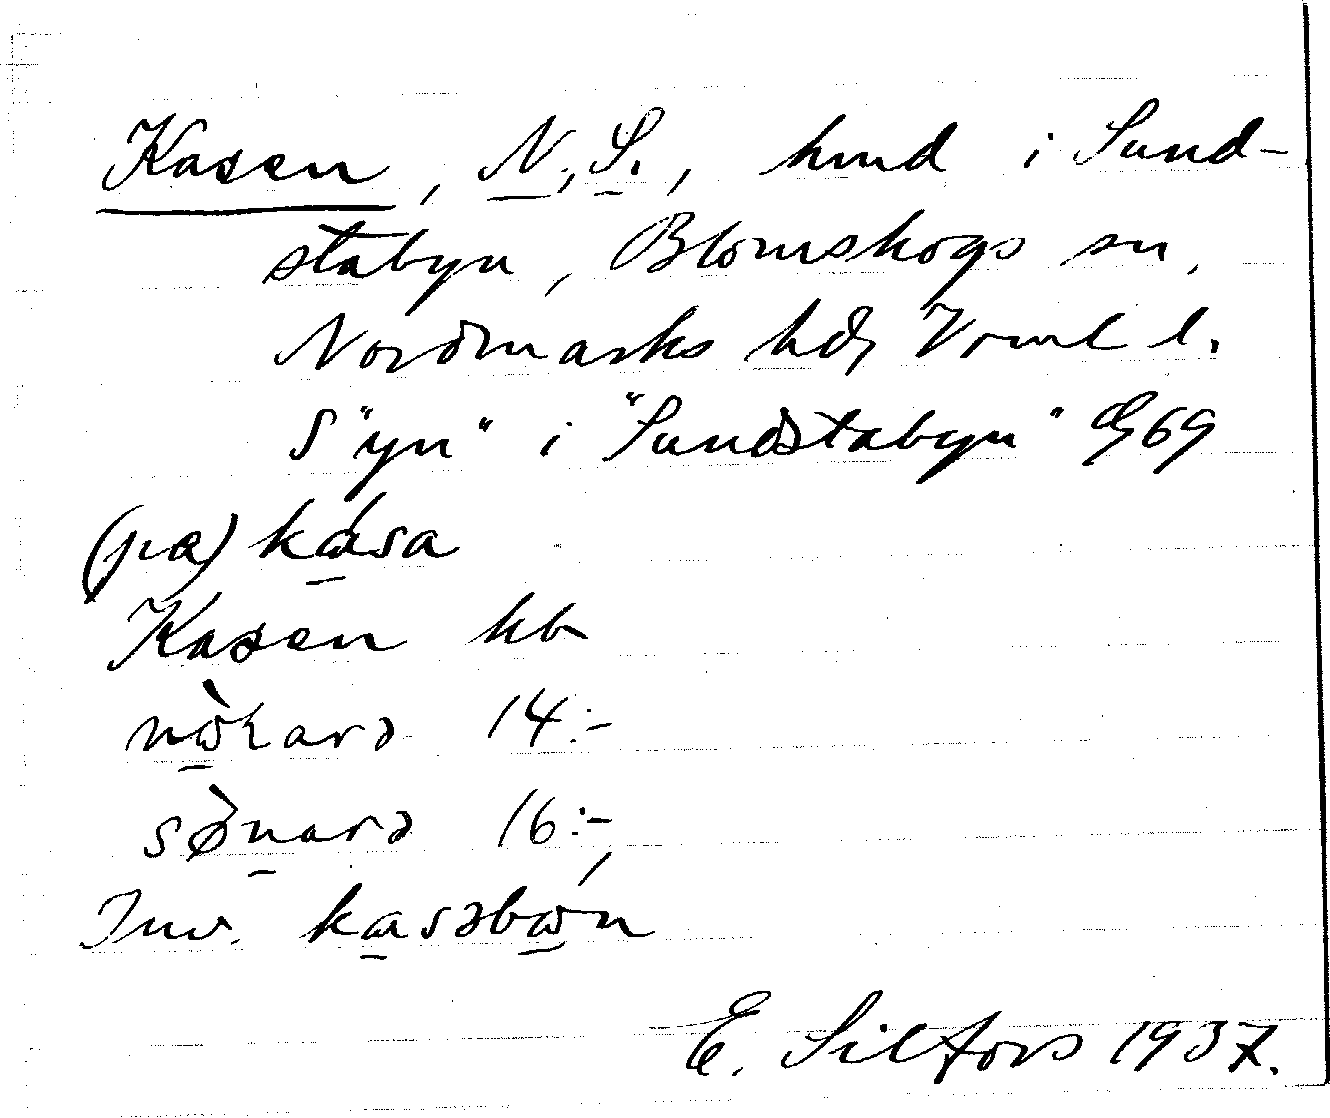 Kasen, N., S., hmd i Sund-
stabyn, Blomskogs sn,
Nordmarks hd, Vrml l.
S "yn" i "Sundstabyn" G69
(pa) kása
Kasen kb
nòkarə 14:-
sønarə 16:-
Inv. kasəbón
E. Silfors 1937.